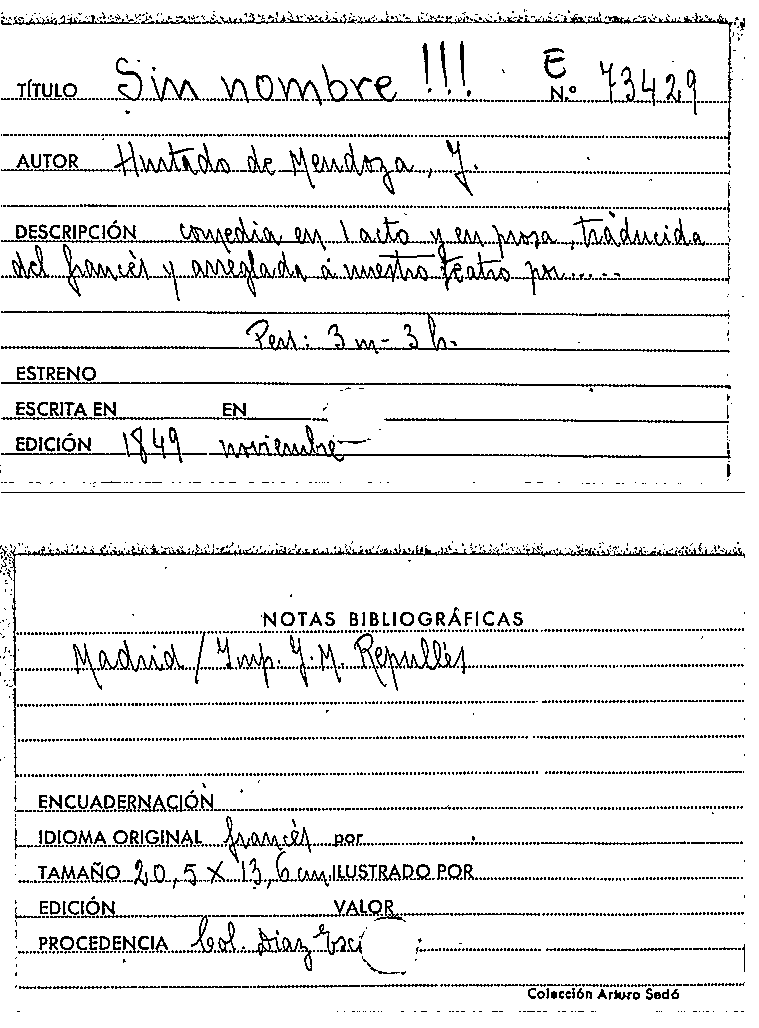 TÍTULO Sin nombre!!! E N.º 73429
AUTOR Hurtado de Mendoza, J.
DESCRIPCIÓN comedia en 1 acto y en prosa, traducida
del francés y arreglada á nuestro teatro por.....
Pers: 3 m - 3 h.
ESTRENO
ESCRITA EN EN
EDICIÓN 1849 noviembre
NOTAS BIBLIOGRÁFICAS
Madrid / Imp. J. M. Repullés
ENCUADERNACIÓN
IDIOMA ORIGINAL francés por
TAMAÑO 20,5 X 13,6 cm. ILUSTRADO POR
EDICIÓN VALOR
PROCEDENCIA Col. Diaz Esc
Colección Arturo Sedó